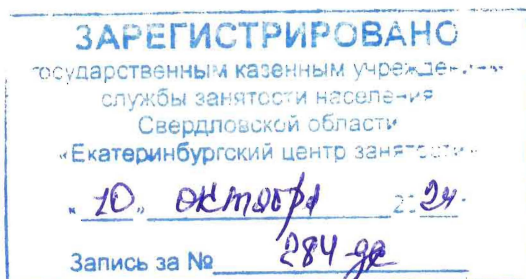 ЗАРЕГИСТРИРОВАНО
государственным казенным учреждением
службы занятости населения
Свердловской области
«Екатеринбургский центр занятости»
"10" октября 2024.
Запись за № 284-де